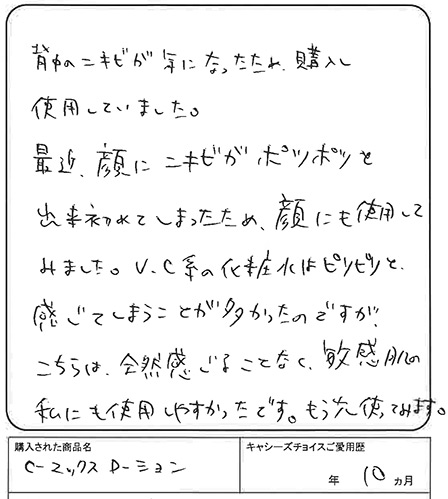 背中のニキビが気になったため、購入し
使用していました。
最近、顔にニキビがポツポツと
出来初めてしまったため、顔にも使用して
みました。V.C系の化粧水はピリピリと、
感じてしまうことが多かったのですが、
こちらは、全然感じることなく、敏感肌の
私にも使用しやすかったです。もう少し使ってみます。
購入された商品名
キャシーズチョイスご愛用歴
C-マックスローション
年 10 ヵ月